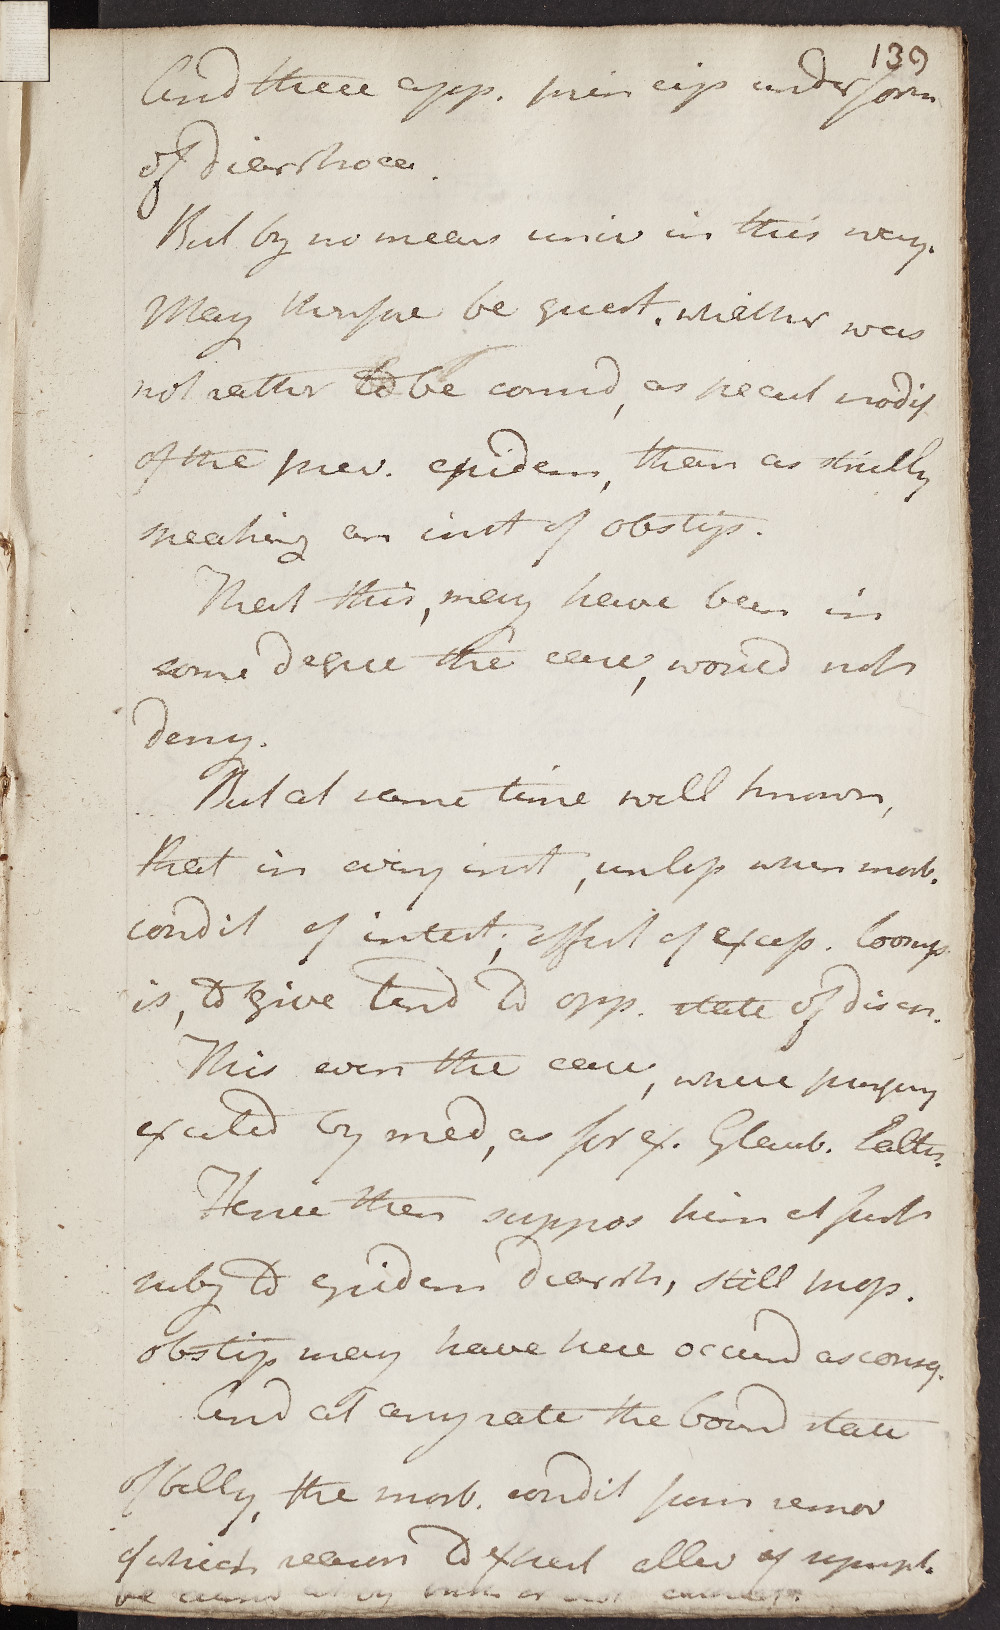 139
And these app. princip under form
of diarrhoea.
But by no means univ in this way.
May therefore be quest. whether was
not rather to be consid, as pecul modif
of the prev. epidem, than as strictly
speaking an inst of obstip.
That this, may have been in
some degree the case, would not
deny.
But at same time well known,
that in every inst, unless when morb.
condit of intest; effect of excess. loosness
is, to give tend to opp. state of disease.
This even the case, where purging
excited by med, as for ex. Glaub. Salts.
Hence then suppos him at first
subj to epidem diarrh, still prop.
obstip may have here occurd as conseq.
And at any rate the bound state
of belly, the morb. condit from remov
of which reason to expect allev of sympt.
be